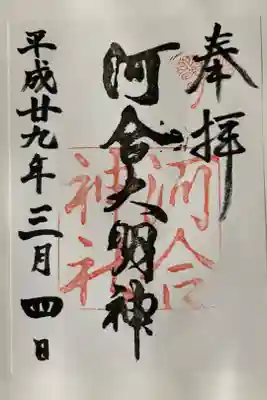 奉拝
河合大明神
河合神社
平成廿九年三月四日